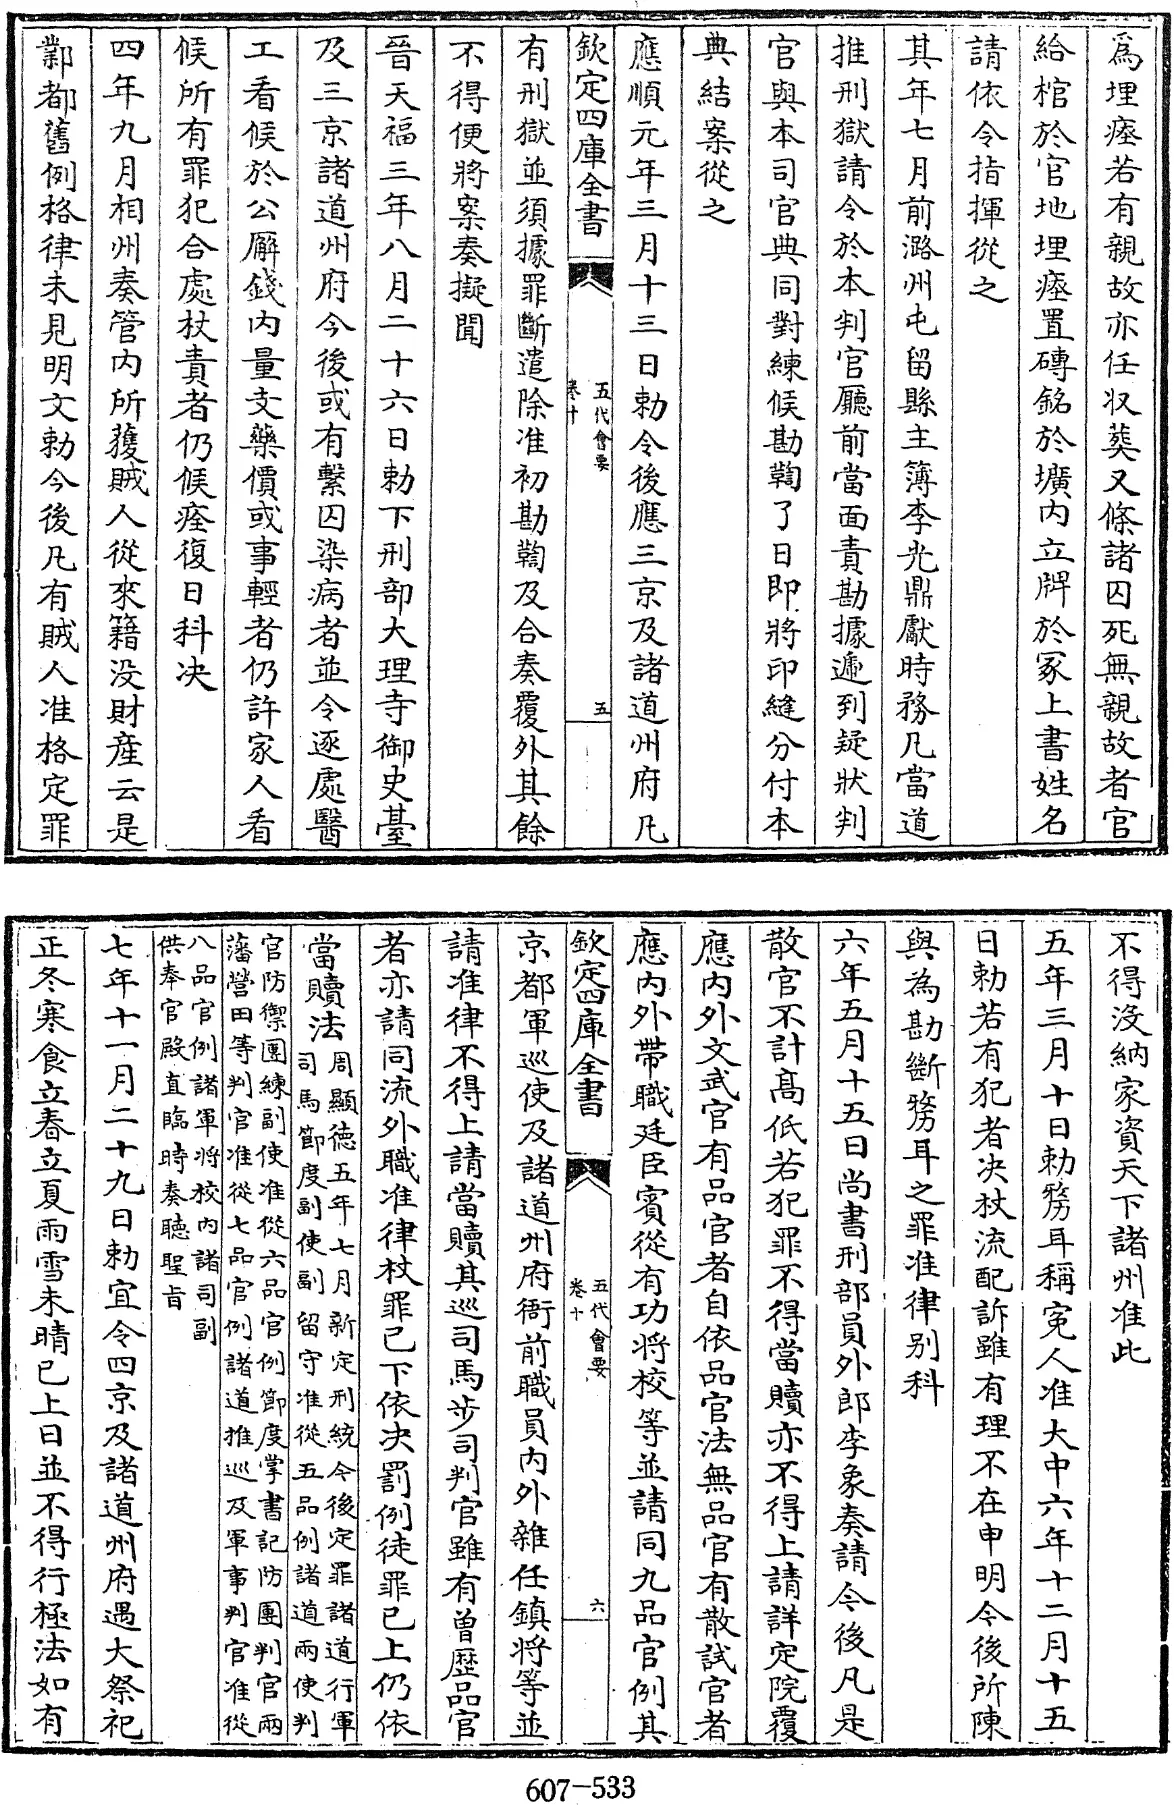 爲埋瘞若有親故亦任収葬又條諸囚死無親故者官
給棺於官地埋瘞置磚銘於壙内立牌於冢上書姓名
請依令指揮從之
其年七月前潞州屯留縣主簿李光鼎獻時務凡當道
推刑獄請令於本判官廳前當面責勘據逓到疑狀判
官與本司官典同對練候勘鞫了日即將印縫分付本
典結案從之
應順元年三月十三日勅今後應三京及諸道州府凡
欽定四庫全書
五代會要
卷十
五
有刑獄並須據罪斷遣除准初勘鞫及合奏覆外其餘
不得便將案奏擬聞
晉天福三年八月二十六日勅下刑部大理寺御史臺
及三京諸道州府今後或有繫囚染病者並令逐處醫
工看候於公廨錢内量支藥價或事輕者仍許家人看
候所有罪犯合處杖責者仍候痊復日科决
四年九月相州奏管内所獲賊人從來籍没財産云是
鄴都舊例格律未見明文勅今後凡有賊人准格定罪
不得没納家資天下諸州准此
五年三月十日勅剺耳稱寃人准大中六年十二月十五
日勅若有犯者决杖流配訴雖有理不在申明今後所陳
與為勘斷剺耳之罪准律别科
六年五月十五日尚書刑部員外郎李象奏請今後凡是
散官不計髙低若犯罪不得當贖亦不得上請詳定院覆
應内外文武官有品官者自依品官法無品官有散試官者
應内外帶職廷臣賓從有功將校等並請同九品官例其
欽定四庫全書
五代會要
卷十
六
京都軍巡使及諸道州府衙前職員内外雜任鎮將等並
請准律不得上請當贖其巡司馬步司判官雖有曾歴品官
者亦請同流外職准律杖罪已下依决罰例徒罪已上仍依
當贖法周顯徳五年七月新定刑統今後定罪諸道行軍
司馬節度副使副留守准從五品例諸道兩使判
官防禦團練副使准從六品官例節度掌書記防團判官兩
藩營田等判官准從七品官例諸道推巡及軍事判官准從
八品官例諸軍將校内諸司副
供奉官殿直臨時奏聽聖旨
七年十一月二十九日勅宜令四京及諸道州府遇大祭祀
正冬寒食立春立夏雨雪未晴已上日並不得行極法如有
607-533